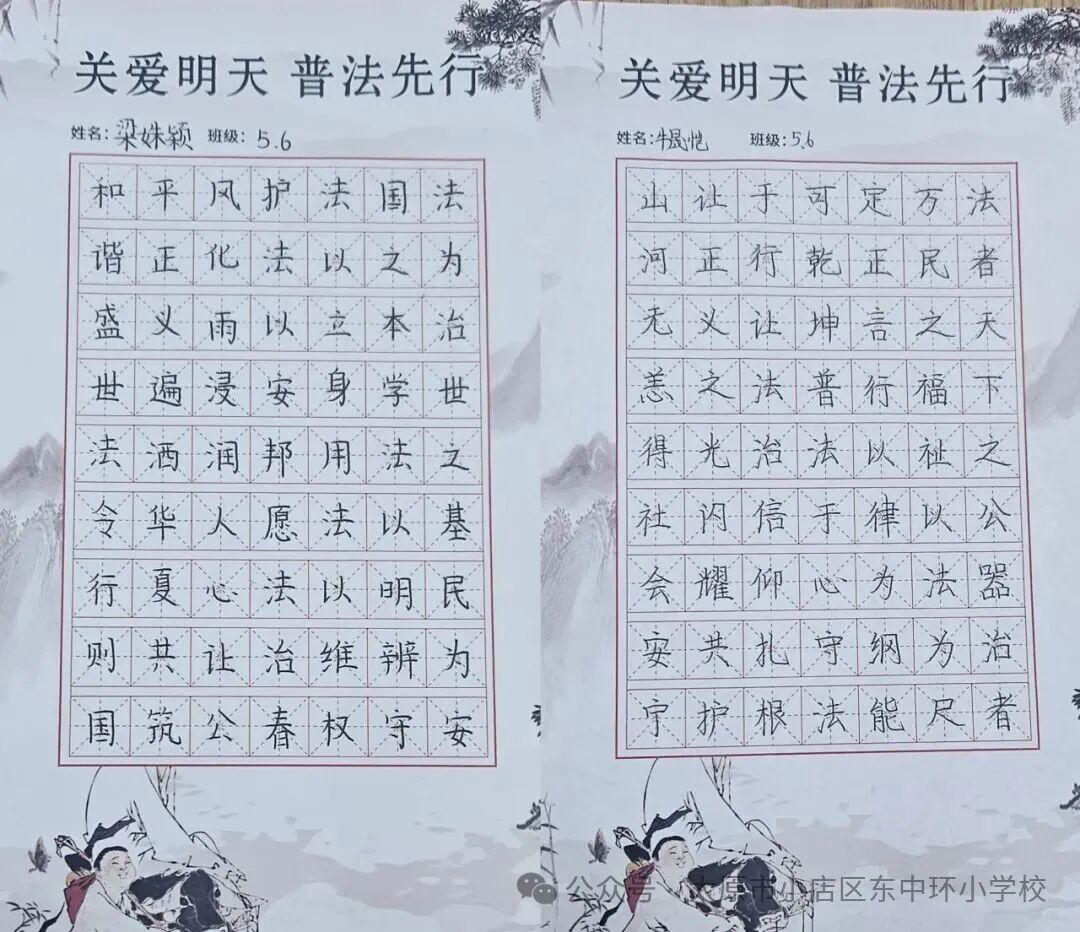 关爱明天 普法先行
姓名:梁姝颖 班级:5.6
法为治世之基民为安
国之本学法以明辨守
法以立身用法以维权
护法以安邦愿法治春
风化雨浸润人心让公
平正义遍洒华夏共筑
和谐盛世法令行则国
关爱明天 普法先行
姓名:牛晟恺 班级:5.6
法者天下之公器治者
万民之福祉以法为尺
定正言行以律为纲能
可乾坤普法于心守法
于行让法治信仰扎根
让正义之光闪耀共护
山河无恙得社会安宇
公众号 · 太原市小店区东中环小学校